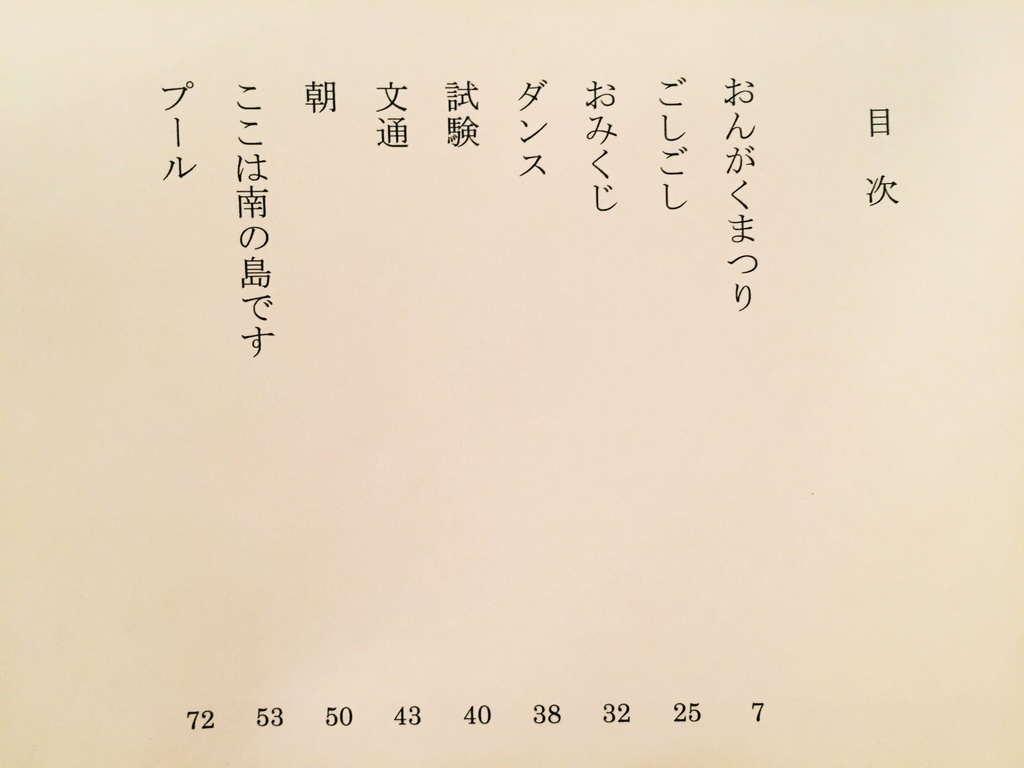 目次
おんがくまつり 7
ごしごし 25
おみくじ 32
ダンス 38
試験 40
文通 43
朝 50
ここは南の島です 53
プール 72